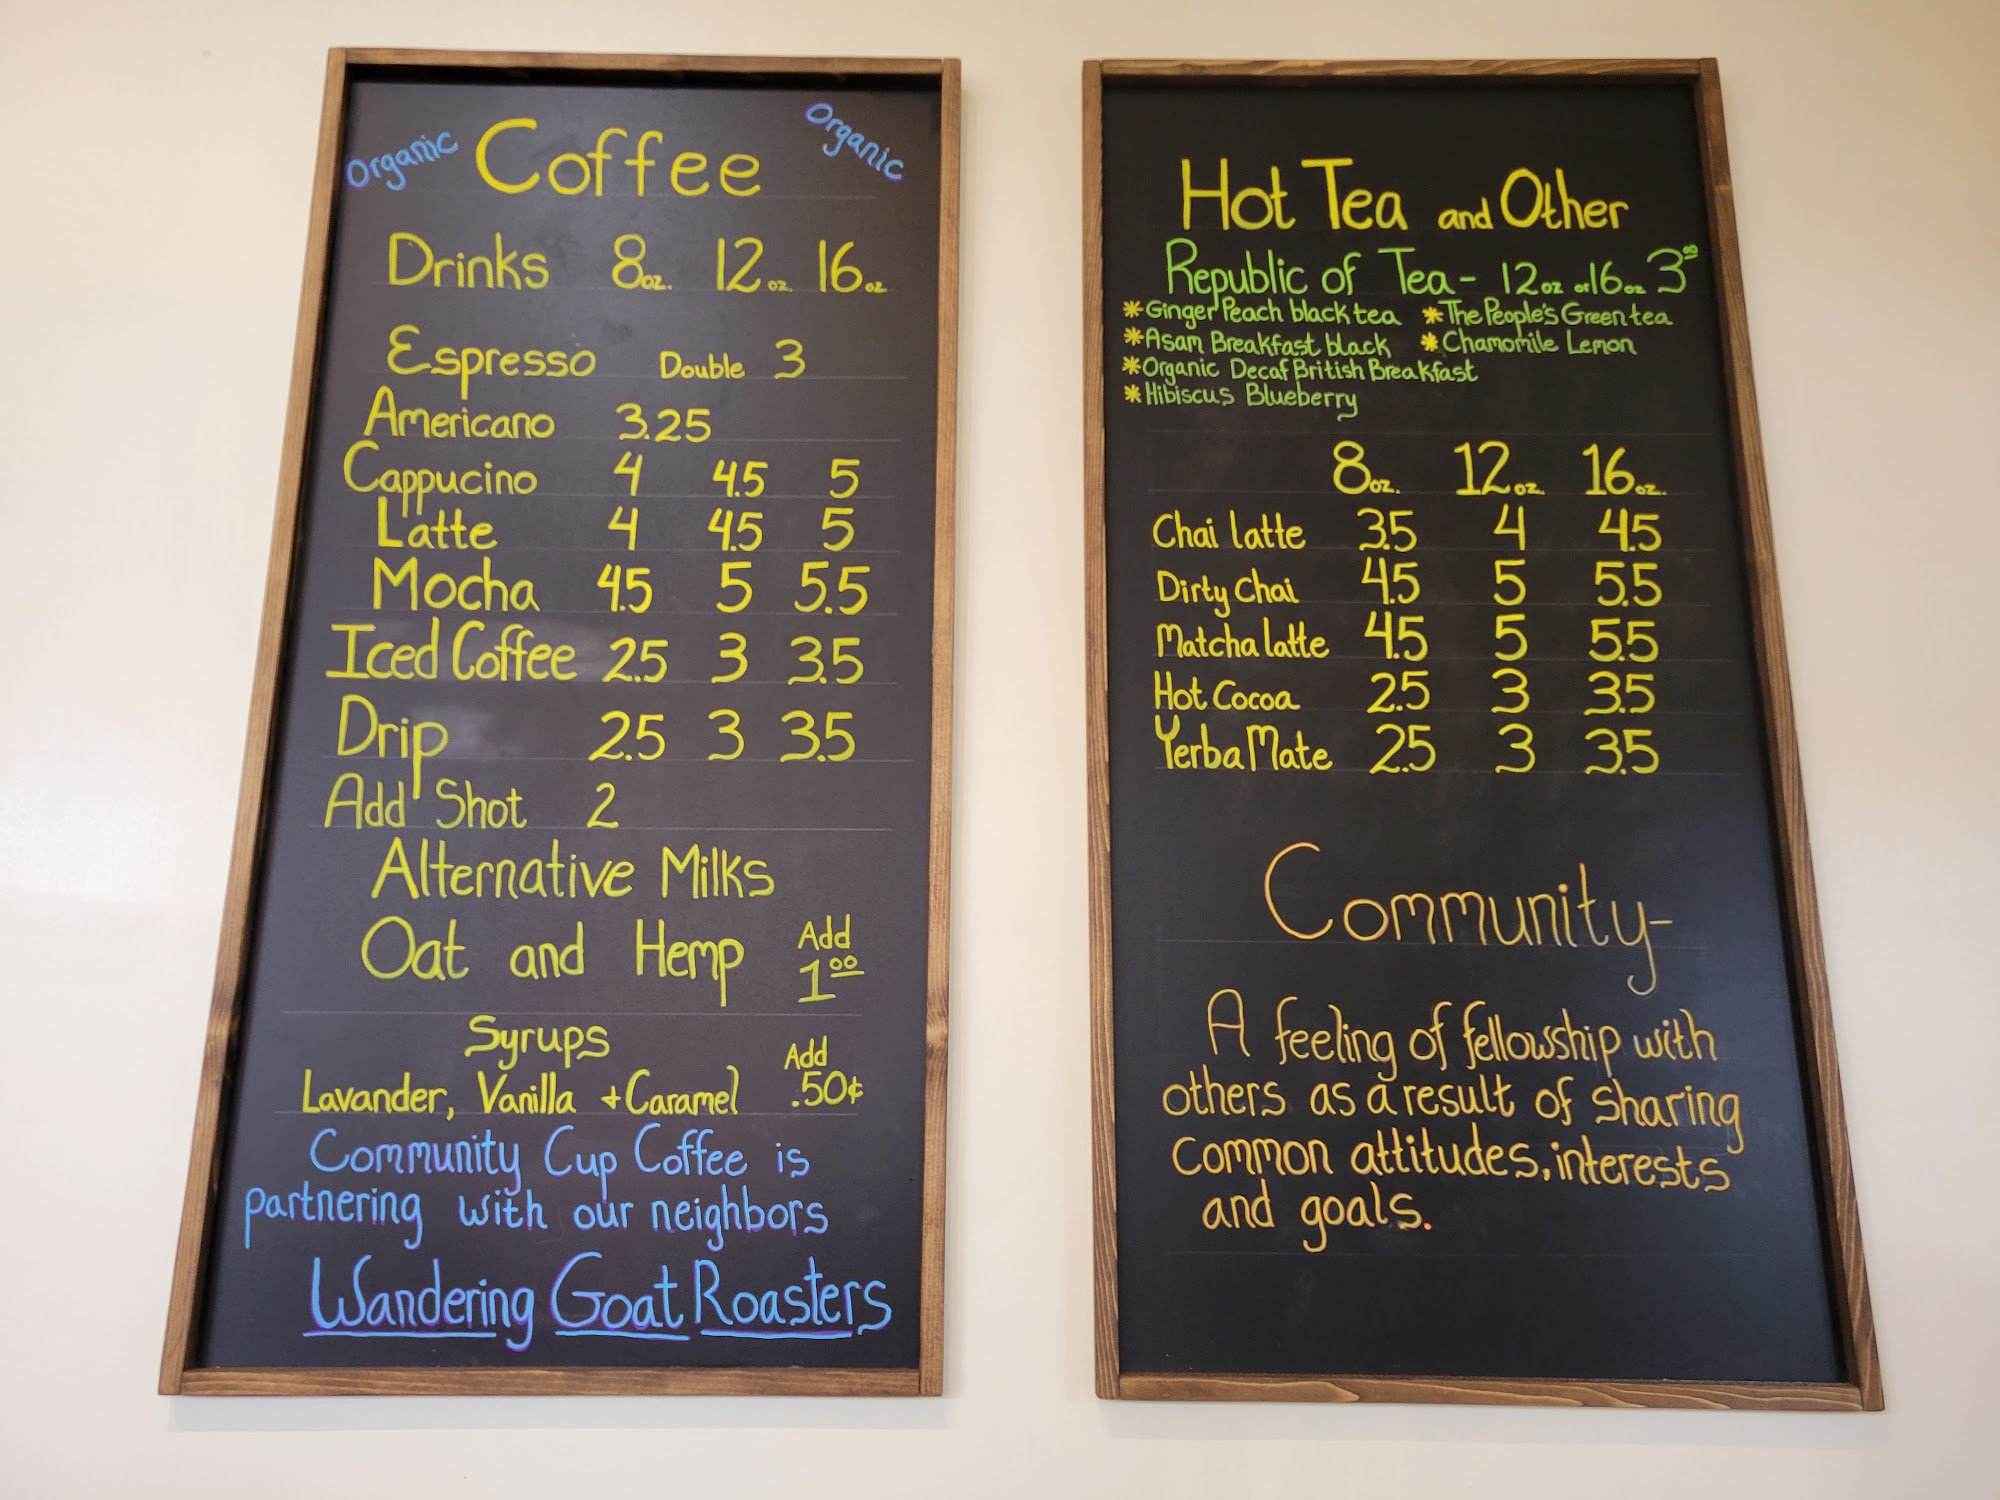 Organic Coffee Organic
Drinks 8oz. 12oz. 16oz
Espresso Double 3
Americano 3.25
Cappucino 4 4.5 5
Latte 4 4.5 5
Mocha 4.5 5 5.5
Iced Coffee 2.5 3 3.5
Drip 2.5 3 3.5
Add Shot 2
Alternative Milks
Oat and Hemp Add 1.00
Syrups
Lavander, Vanilla + Caramel Add .50¢
Community Cup Coffee is
partnering with our neighbors
Wandering Goat Roasters
Hot Tea and Other
Republic of Tea - 12oz or 16oz 3.00
*Ginger Peach black tea *The People's Green tea
*Asam Breakfast black *Chamomile Lemon
*Organic Decaf British Breakfast
*Hibiscus Blueberry
8oz. 12oz. 16oz.
Chai latte 3.5 4 4.5
Dirty Chai 4.5 5 5.5
Matcha latte 4.5 5 5.5
Hot Cocoa 2.5 3 3.5
Yerba Mate 2.5 3 3.5
Community-
A feeling of fellowship with
others as a result of sharing
common attitudes, interests
and goals.